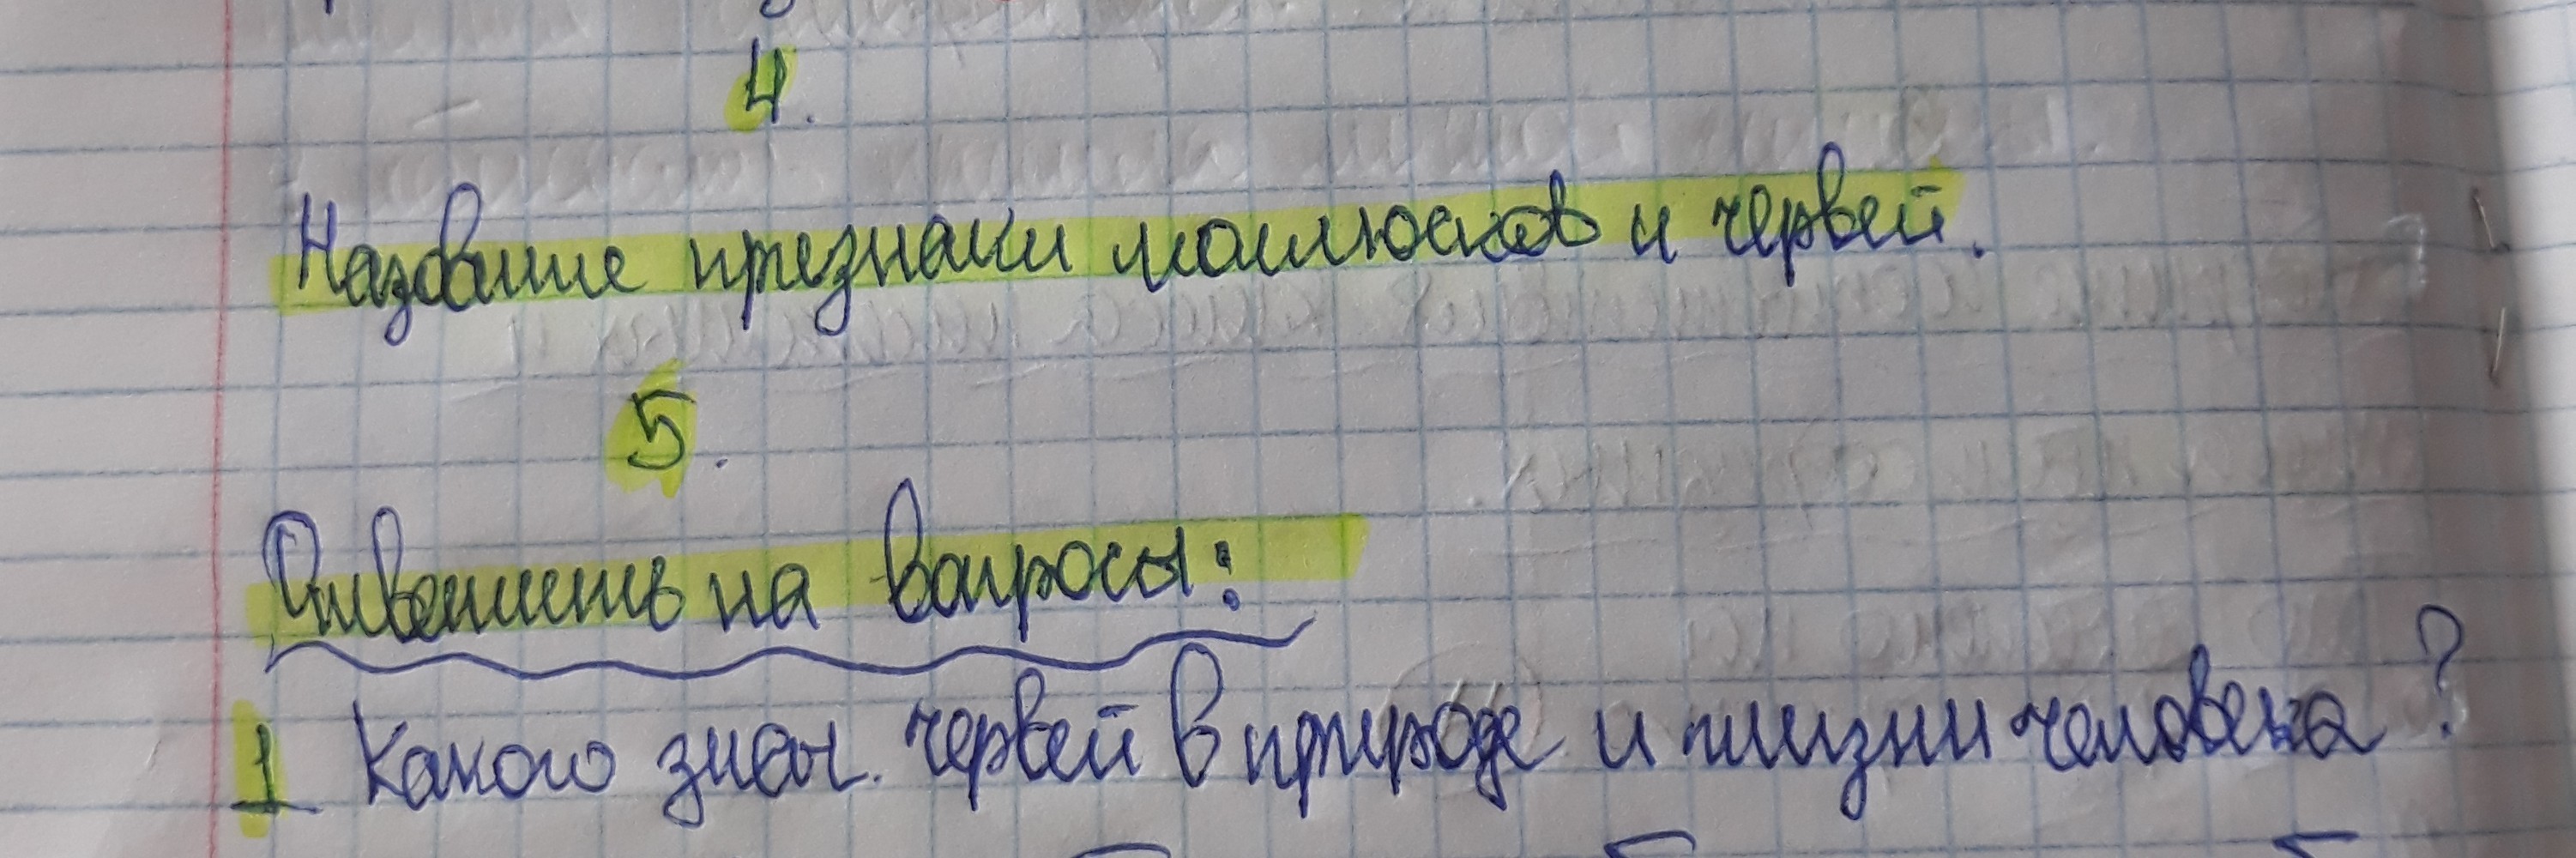 4.
Назовите признаки моллюсков и червей.
5.
Ответить на вопросы:
1 Каково знач. червей в природе и жизни человека?